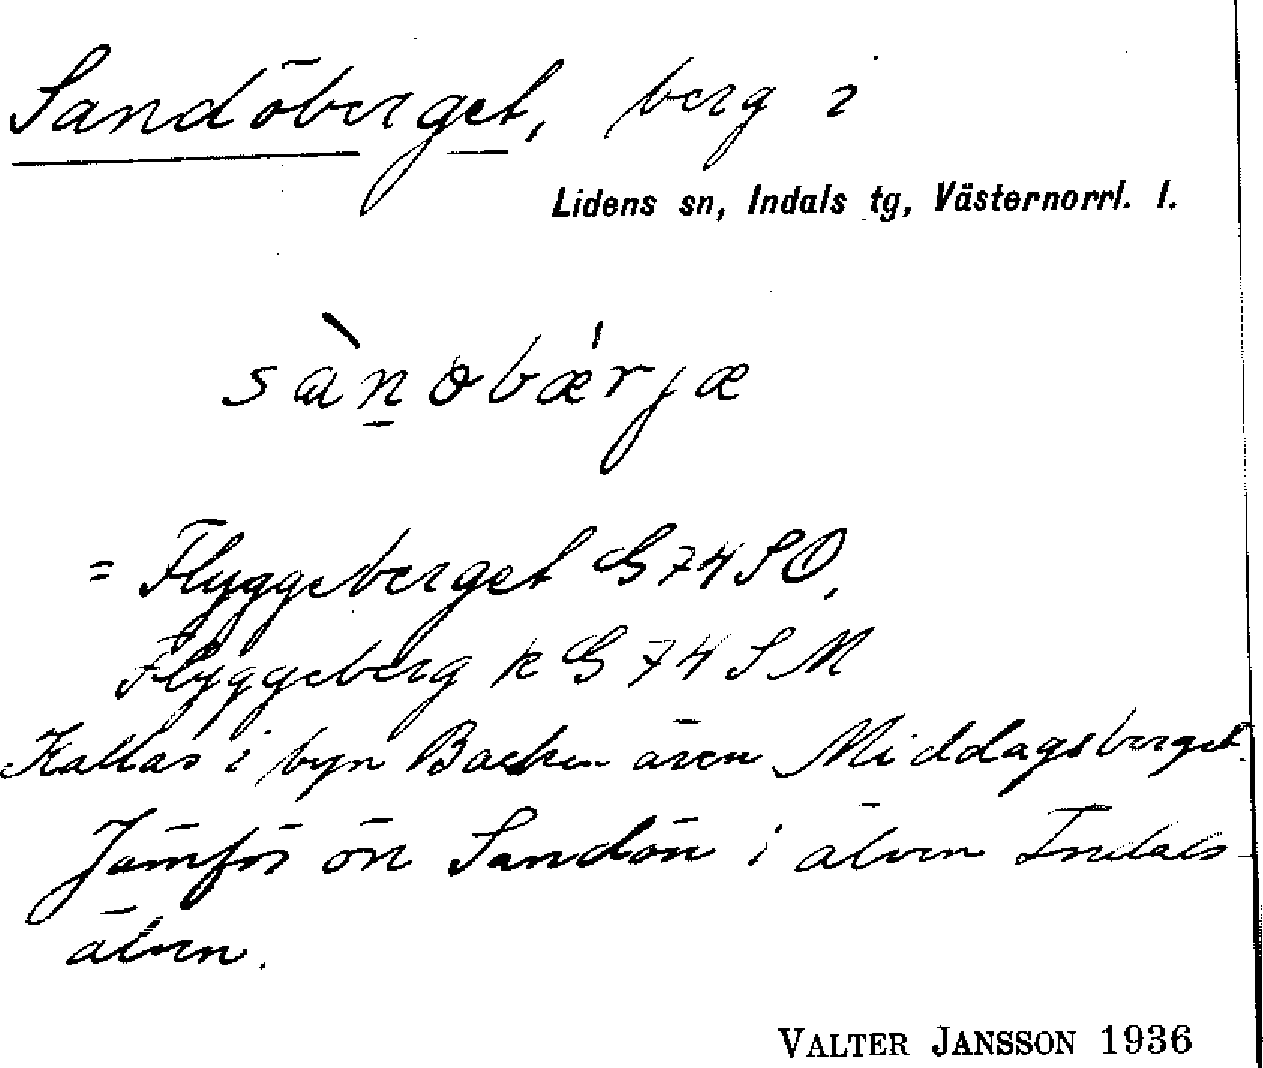 Sandöberget, berg i
Lidens sn, Indals tg, Västernorrl. l.
sànobǽrjæ
= Flyggeberget G 74 SO,
Flyggeberg k G 74 SM
Kallas i byn Backen även Middagsberget.
Jämför ön Sandön i älven Indals-
älven.
VALTER JANSSON 1936